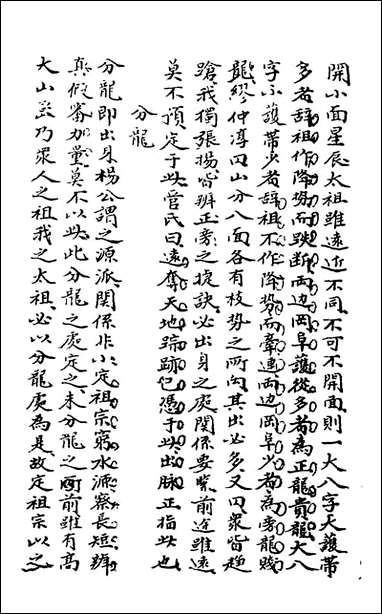 開小面星辰太祖雖遠近不同不可不開面則一大八字天護帶
多者辞祖作降势而跌断两边冈阜護從多者為正龍貴龍大八
字小護帶少者辞祖不作降势而牽連两边冈阜少者為旁龍賤
龍繆仲淳曰山分八面各有枝势之所向其出必多又曰衆皆趋
蹌我獨張揚皆辨正旁之捷訣必出身之處関係要紫前途雖遠
莫不預定于此管氏曰遠奪天地踪跡已憑于此出脉正指此也
分龍
分龍即出身楊公謂之源派関係非小定祖宗窮水源察長短辨
真假審加量莫不以此此分龍之處定之未分龍之前雖有高
大山㟁乃衆人之祖我之太祖必以分龍處為是故定祖宗以之